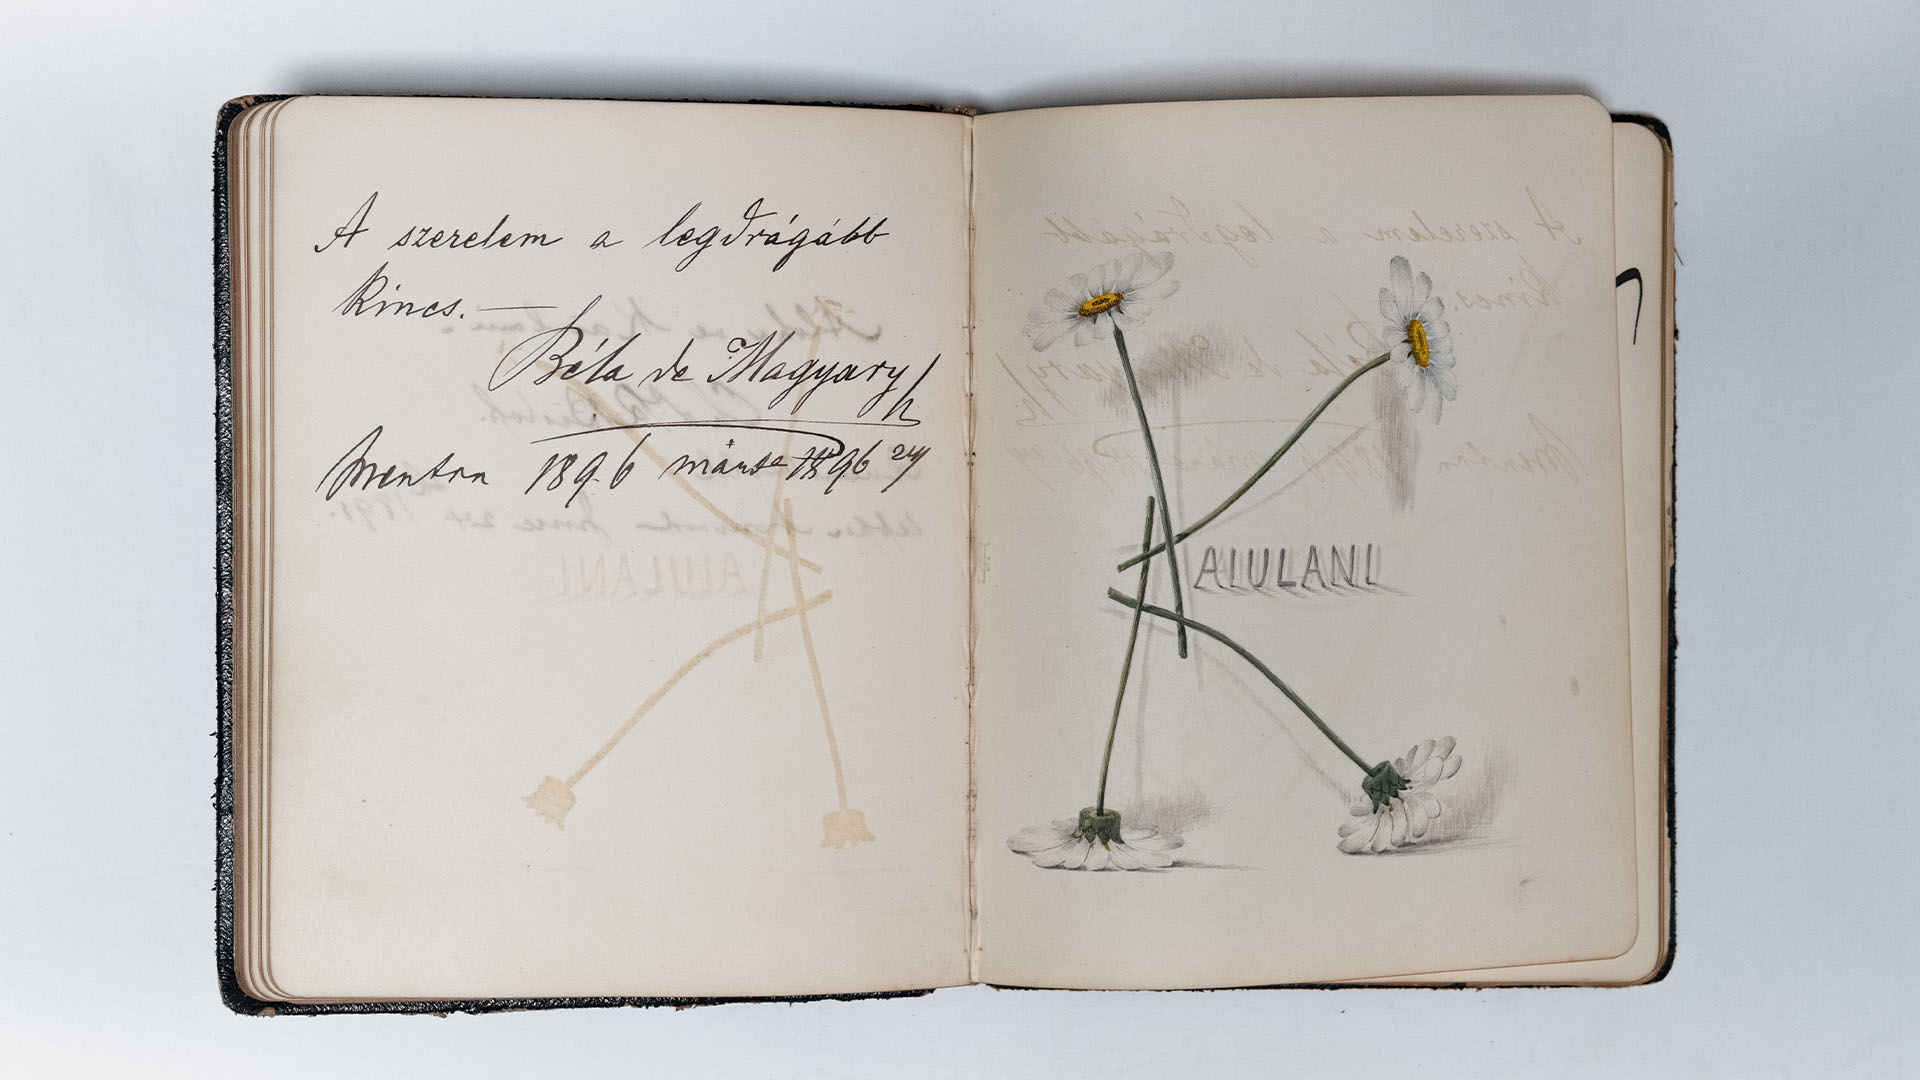 A szerelem a legdrágább
kincs. —
Béla de Magyary
Menton 1896 1896 24
AIULANI